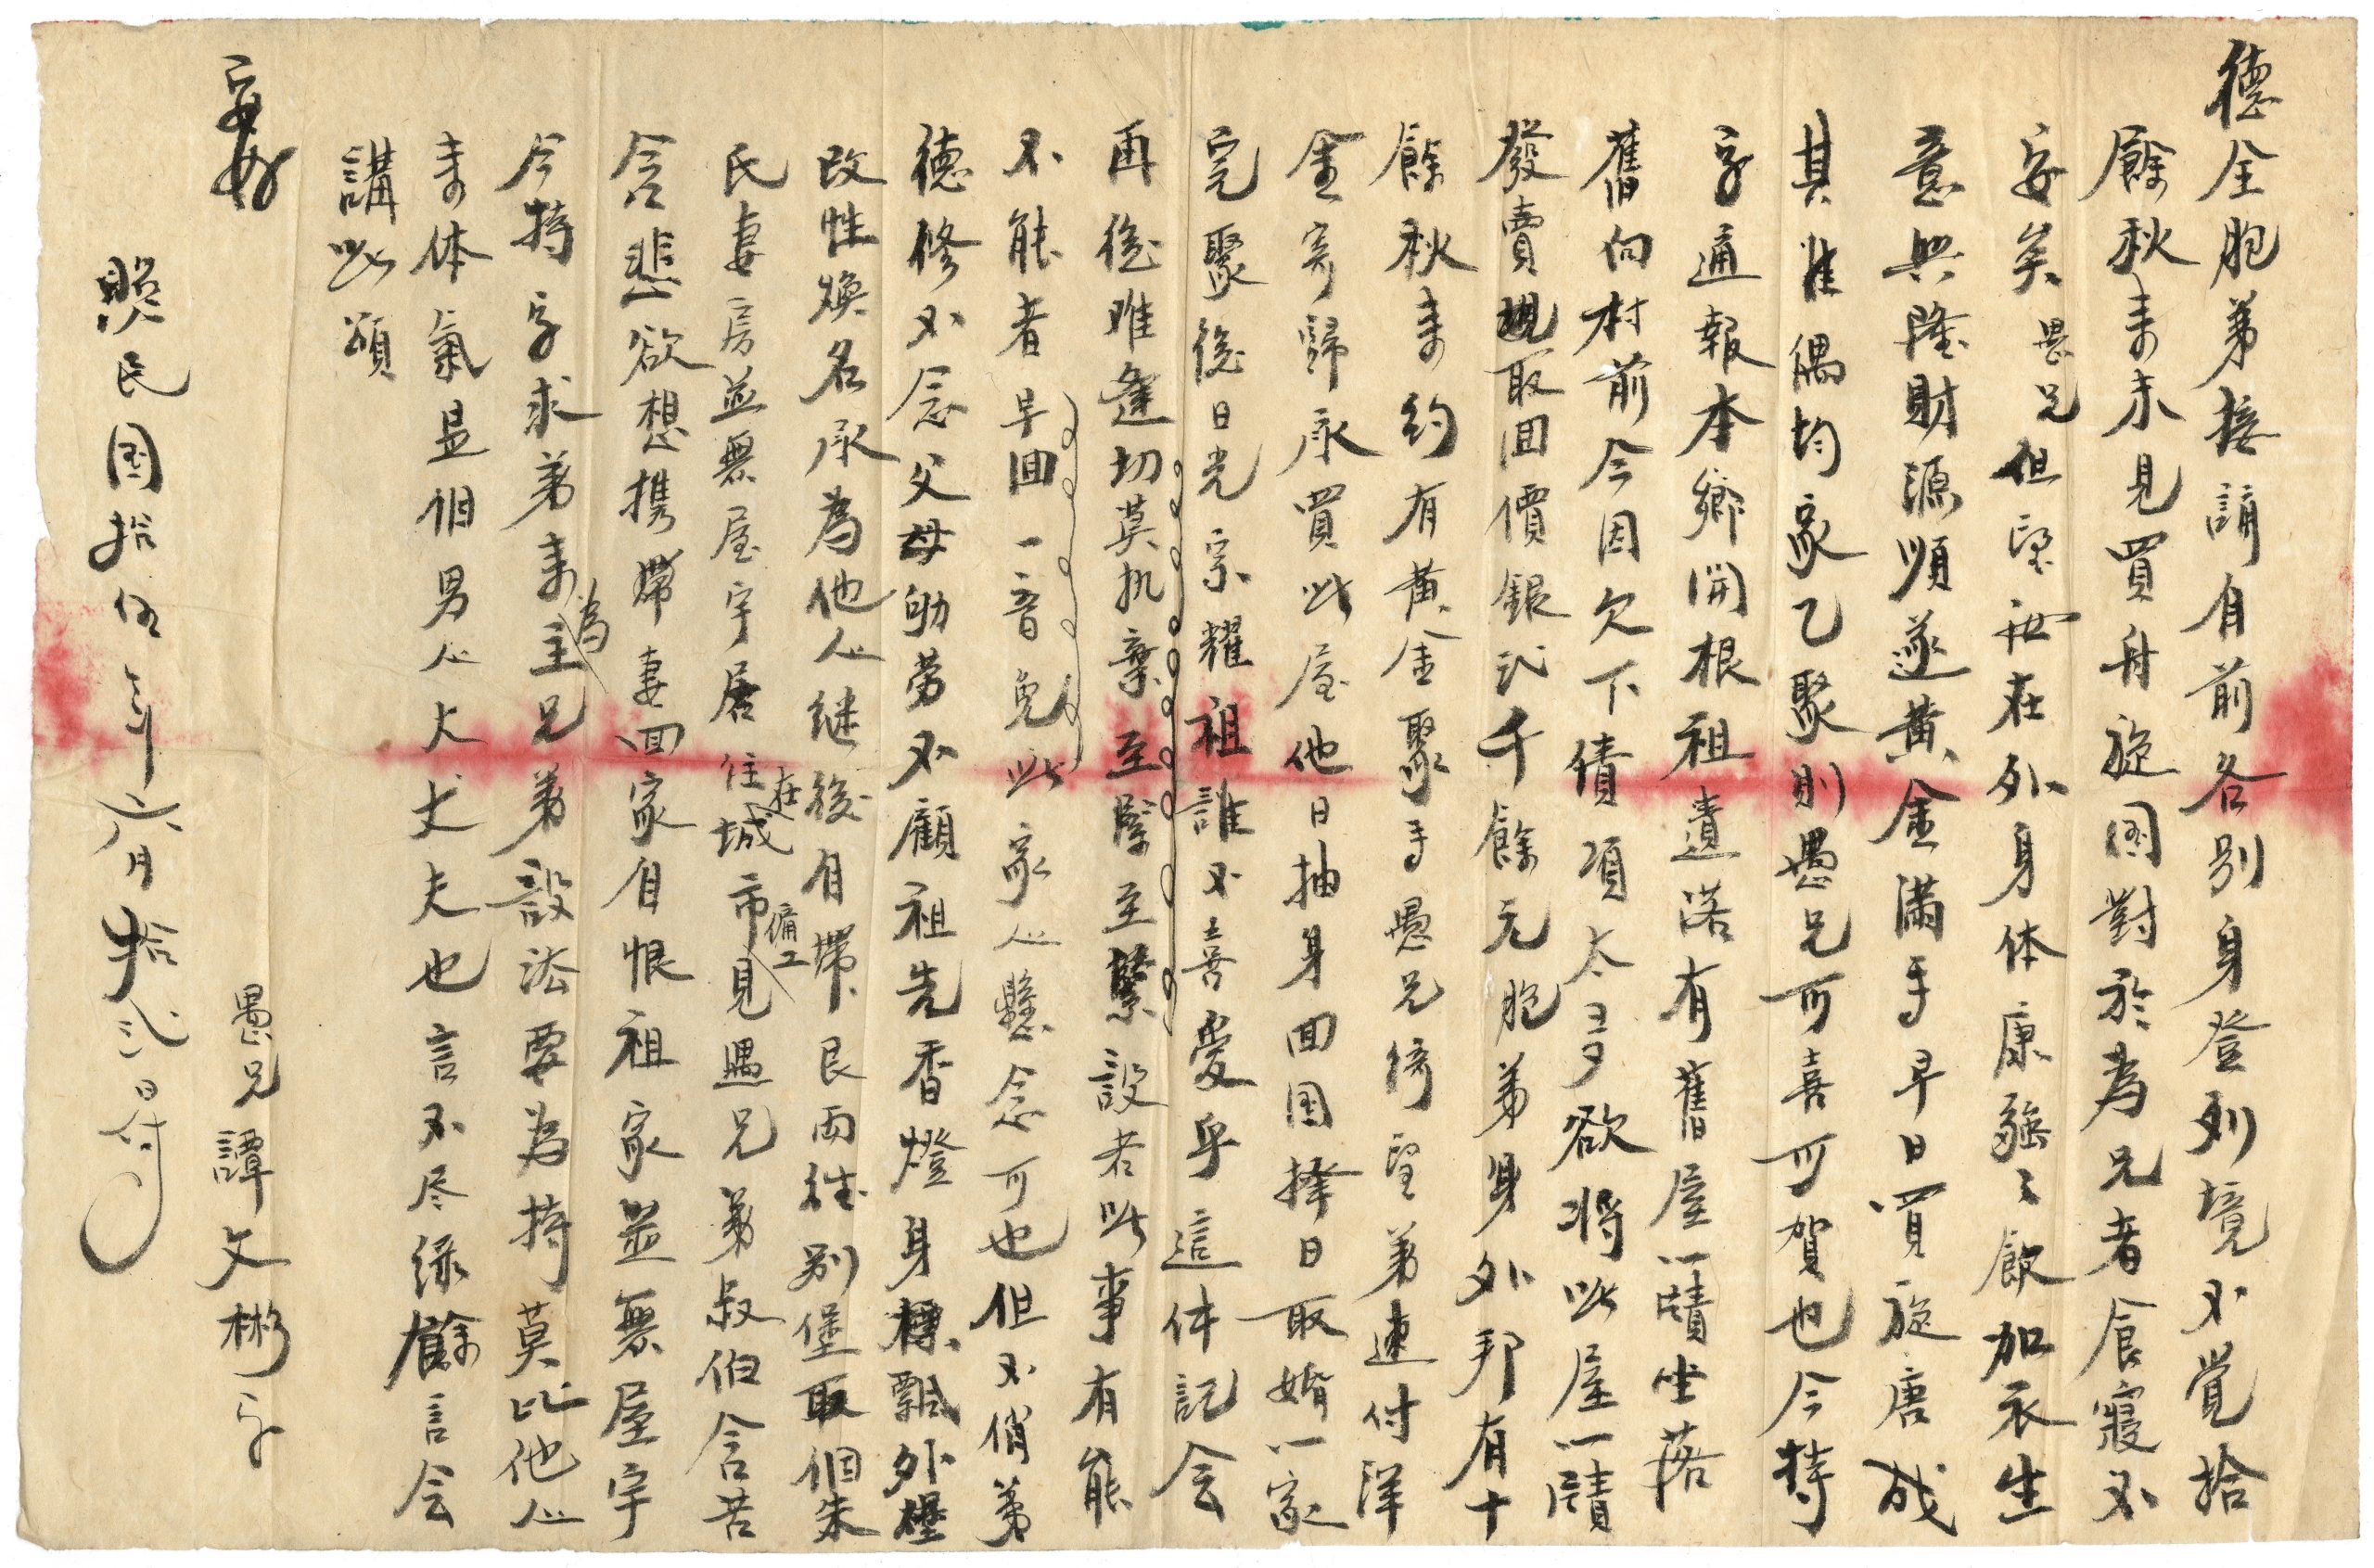 德全胞弟接請自前各別身登列境不覺拾
餘秋来未見買舟旋國對於為兄者食寢不
安矣愚兄但望 在外身体康強々飲加衣生
意興隆財源順遂黃金滿手早日買旋唐成
其隹偶均家乙聚則愚兄可喜可賀也今特
字通報本鄉開根祖遺落有舊屋一賾坐落
舊向村前今因欠下債項太多欲將此屋一賾
發賣現取回價銀弍千餘元胞弟身外邦有十
餘秋来約有黃金聚手愚兄 望弟速付洋
金寄歸承買此屋他日抽身回国擇日取婚一家
完聚後日光宗耀祖誰不喜愛乎這体記会
再後难逢切莫抛棄至緊至緊設若此事有能
不能者早回一音免此家人懸念可也但不俏弟
德修不念父母劬劳不顧祖先香燈身 飄外
改性煥名承為他人継後自帶艮両往别堡取個朱
氏妻房並無屋宇居住在城市傭工見遇兄弟叔伯含苦
含悲欲想携帶妻回家自恨祖家並無屋宇
今持字求弟来為主兄弟設法要為持莫比他人
来体氣是個男人大丈夫也言不尽緑餘言会
講此頌
安好
愚兄譚文彬字
民国拾伍年六月拾弍日付